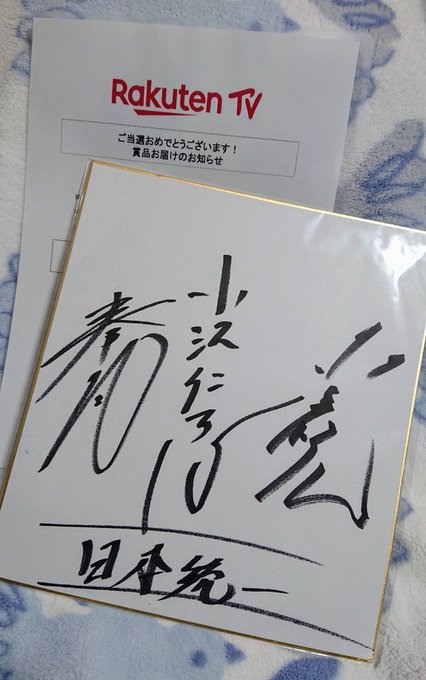 Rakuten TV
ご当選おめでとうございます!
賞品お届けのお知らせ
小沢仁志
日本統一